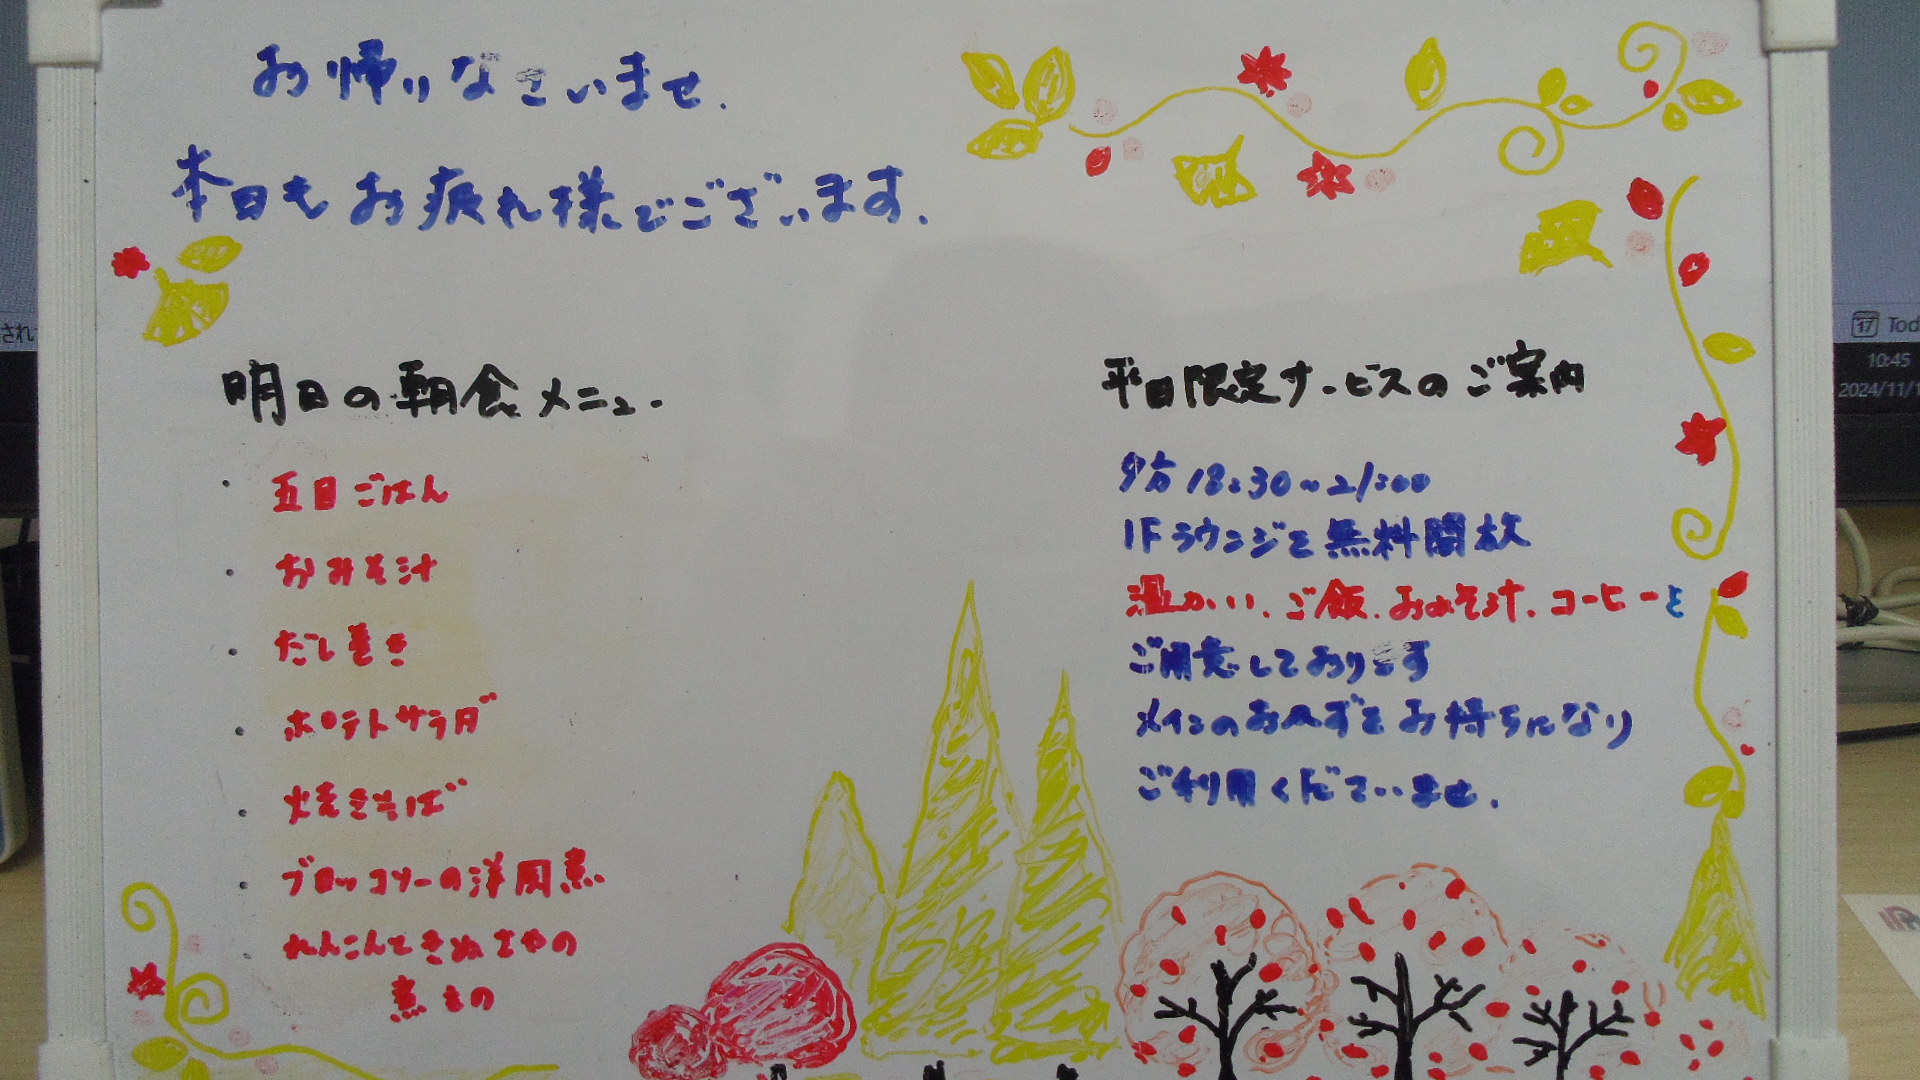 お帰りなさいませ.
本日もお疲れ様でございます.
明日の朝食メニュー.
・五目ごはん
・おみそ汁
・だし巻き
・ポテトサラダ
・焼きそば
・ブロッコリーの洋風煮
・れんこんときぬさやの
煮もの
平日限定サービスのご案内
夕方18:30~21:00
1Fラウンジを無料開放
温かい、ご飯、おみそ汁、コーヒーを
ご用意しております
メインのおかずをお持ちになり
ご利用くださいませ.
され
17 Tod
10:45
2024/11/1